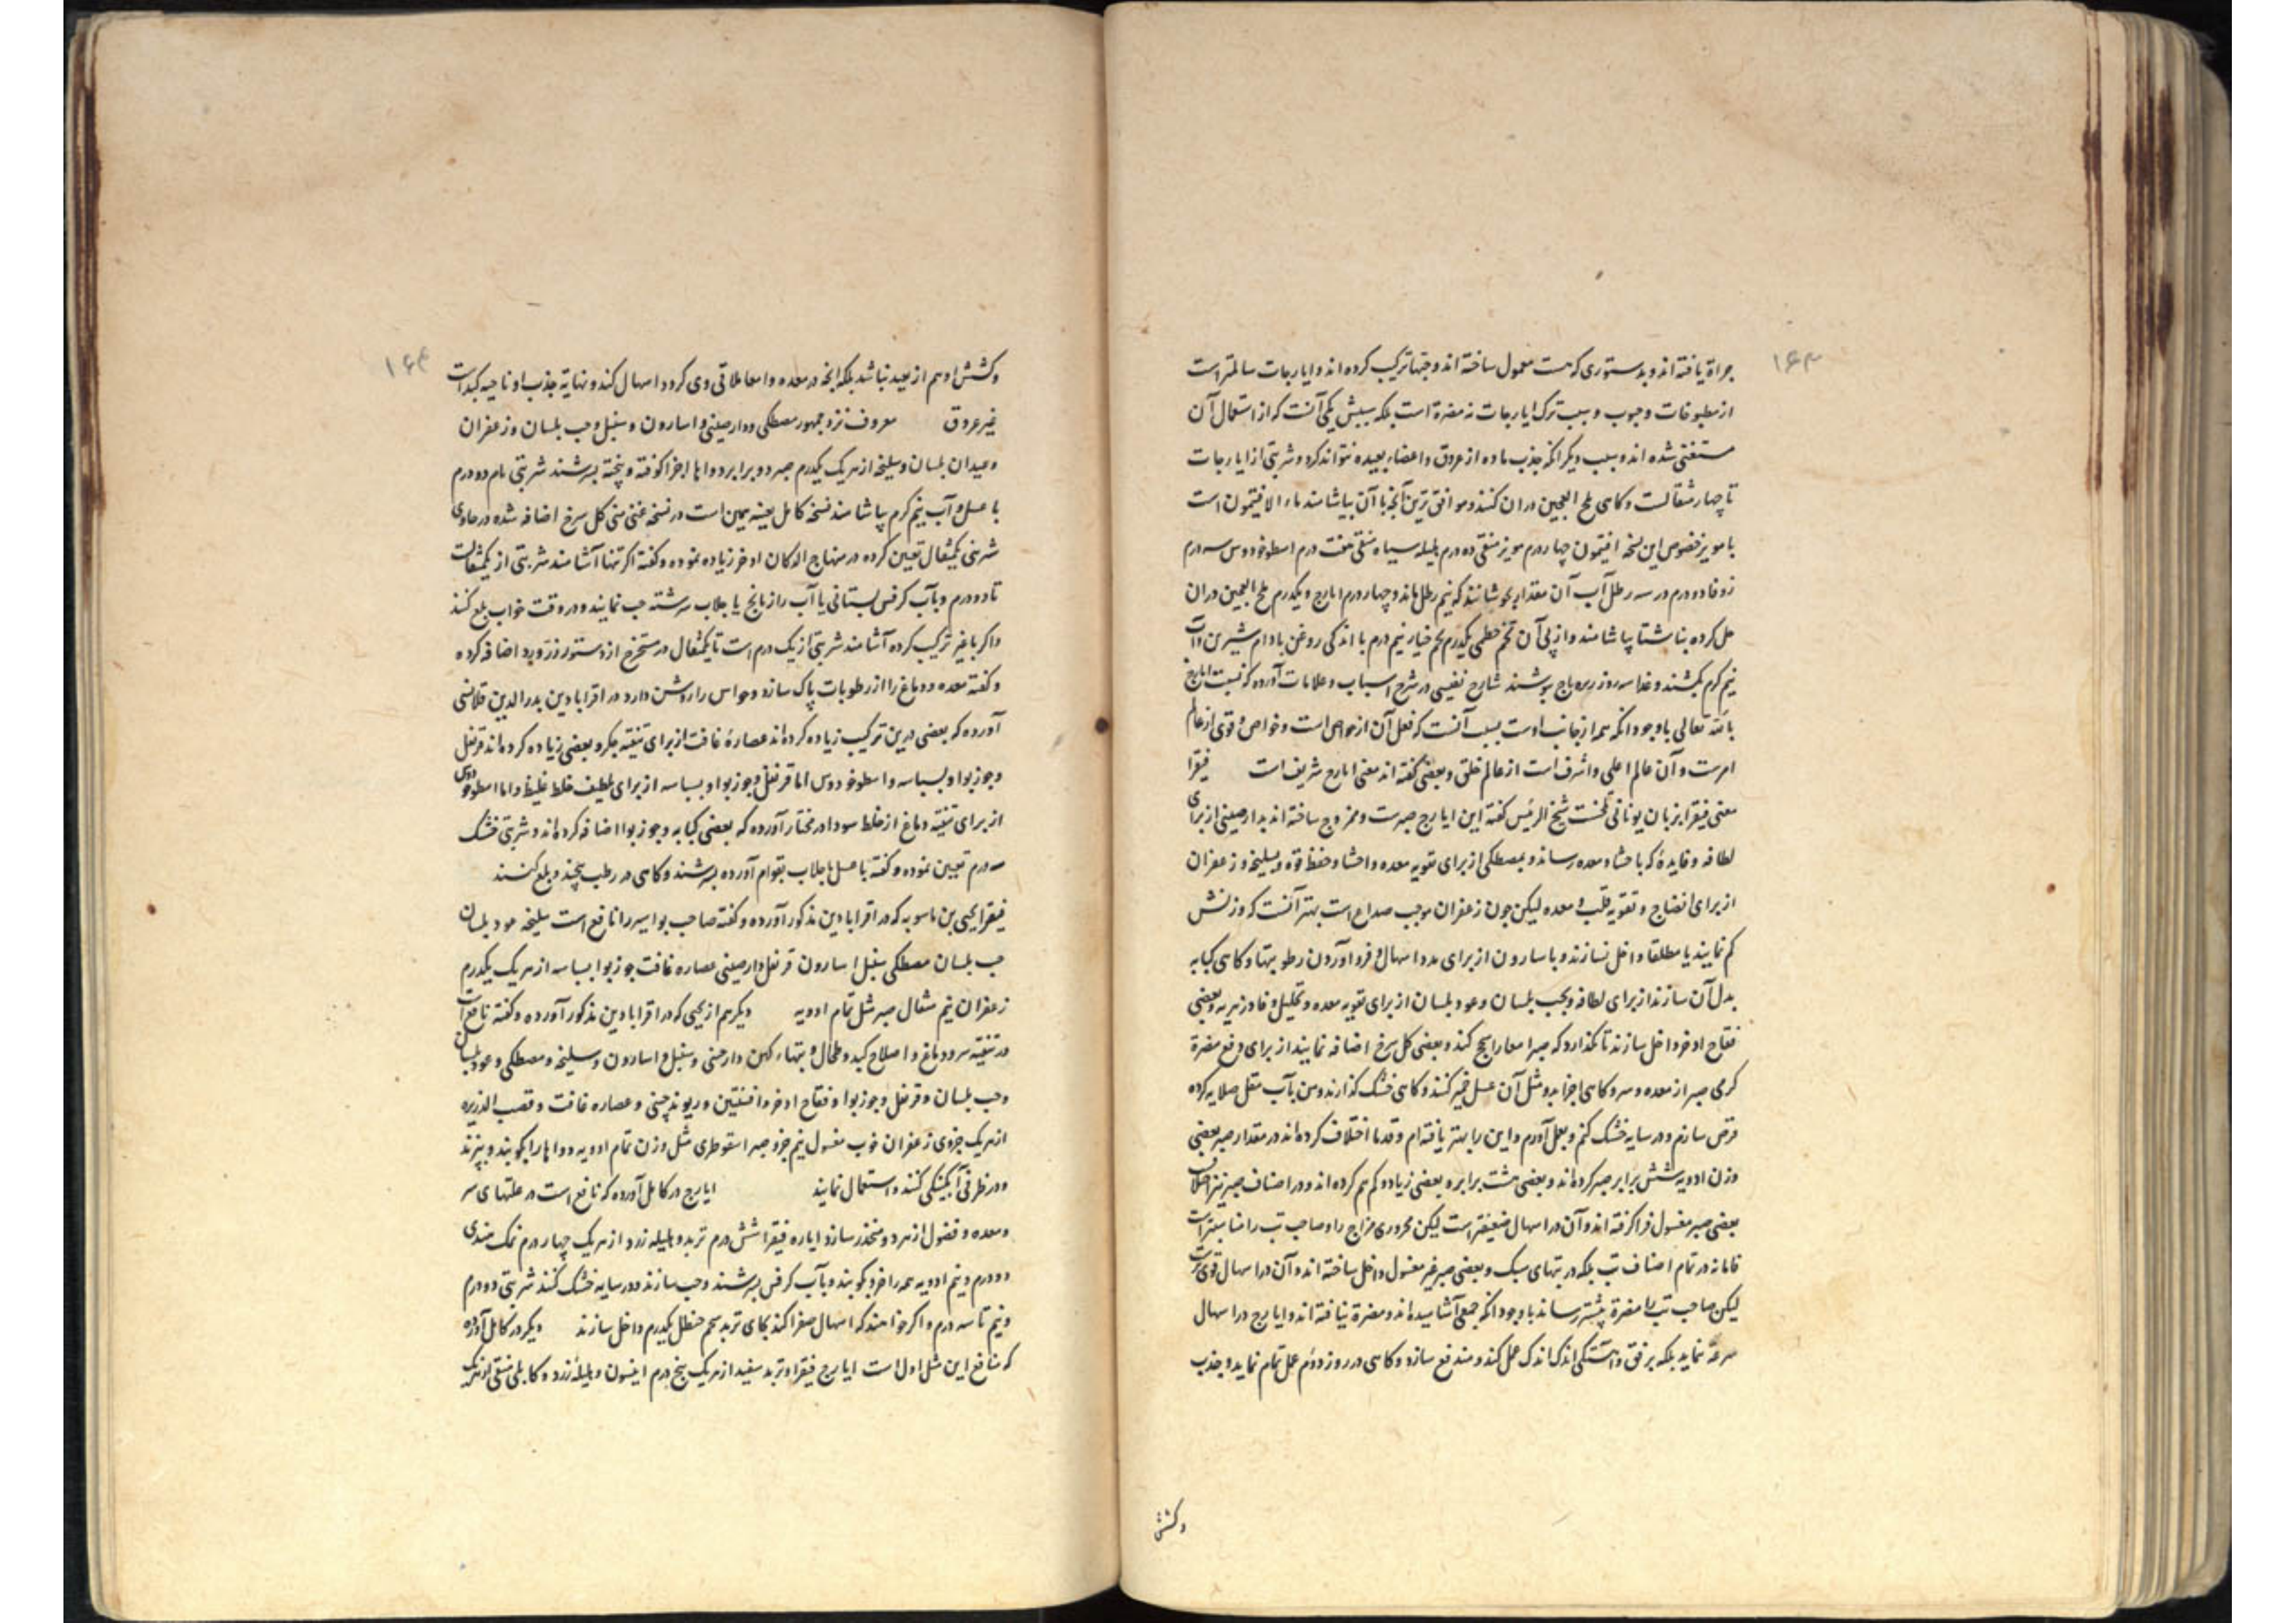 ۱۶۳
جراة یافته اند و بدستوری که هست معمول ساخته اند و حبها ترکیب کرده اند و ایارجات سالمتر است
از مطبوخات و حبوب و سبب ترک ایارجات نه مضرة است بلکه سببش یکی آنست که از استعمال آن
مستغنی شده اند و سبب دیگر انکه جذب ماده از عروق و اعضاء بعیده نتواند کرد و شربتی از ایارجات
تا چهار مثقالست و کاهی ملح العجین دران کنند و موافق ترین آنچه با آن بیاشامند ماء الافیتمون است
با مویز خصوص این نسخه افیتمون چهار درم مویز منقی ده درم هلیله سیاه منقی هفت درم اسطوخودوس سه درم
زوفا دو درم در سه رطل آب آن مقدار بجوشانند که نیم رطل ماند و چهار درم ایارج و یکدرم ملح العجین دران
حل کرده بناشتا بیاشامند و از پی آن تخم خطمی یکدرم تخم خیار نیم درم با اندکی روغن بادام شیرین و آب
نیم کرم بکشند و غذا سه روز زیره باج بنوشند شارح نفیسی در شرح اسباب و علامات آورده که نسبت ایارج
بالله تعالی باوجود انکه همه از جانب اوست بسبب آنست که فعل آن از خواص است و خواص و قوی از عالم
امرست و آن عالم اعلی و اشرف است از عالم خلق و بعضی کفته اند معنی ایارج شریف است فیقرا
معنی فیقرا بزبان یونانی تلخست شیخ الرئیس کفته این ایارج صبرست و ممزوج ساخته اند بدارصینی از برای
لطافه و فایدۀ که باحشا و معده رساند و بمصطکی از برای تقویه معده و احشا و حفظ قوه و بسلیخه و زعفران
از برای انضاج و تقویه قلب و معده لیکن چون زعفران موجب صداع است بهتر آنست که وزنش
کم نمایند یا مطلقا داخل نسازند و باسارون از برای مدد اسهال و فرو آوردن رطوبتها و کاهی کبابه
بدل آن سازند از برای لطافه و بحب بلسان و عود بلسان از برای تقویه معده و تحلیل و فادزهریه و بعضی
فقاح اذخر داخل سازند تا نکذارد که صبر امعا را سحج کند و بعضی کل سرخ اضافه نمایند از برای دفع مضرة
کرمی صبر از معده و سر و کاهی اجزا بدو مثل آن عسل خمیر کنند و کاهی خشک کذارند و من بآب مقل صلایه کرده
قرص سازم و در سایه خشک کنم و بعمل آورم و این را بهتر یافته ام و قدما اختلاف کرده اند در مقدار صبر بعضی
وزن ادویه شش برابر صبر کرده اند و بعضی هشت برابر و بعضی زیاد و کم هم کرده اند و در اصناف صبر نیز اختلاف
بعضی صبر مغسول فرا کرفته اند و آن در اسهال ضعیفتر است لیکن محروری مزاج را و صاحب تب را مناسبتر است
فاما نه در تمام اصناف تب بلکه در تبهای سبک و بعضی صبر غیر مغسول داخل ساخته اند و آن در اسهال قویتر است
لیکن صاحب تب را مضرة بیشتر رساند باوجود انکه جمعی آشامیده اند و مضرة نیافته اند و ایارج در اسهال
سرعة ننماید بلکه برفق و آهستکی اندک اندک عمل کند و مندفع سازد و کاهی در روز دوم عمل تمام نماید و جذب
و کشش
۱۶۴
و کشش او هم از بعید نباشد بلکه انچه در معده و امعا ملاقی وی کردد اسهال کند و نهایة جذب او ناحیه کبد است
غیر عروق معروف نزد جمهور مصطکی و دارصینی و اسارون و سنبل و حب بلسان و زعفران
و عیدان بلسان و سلیخه از هریک یکدرم صبر دو برابر دواها اجزا کوفته و بیخته بسرشند شربتی تام دو درم
با عسل و آب نیم کرم بیاشامند نسخه کامل بعینه همین است در نسخه غنی منی کل سرخ اضافه شده در حاوی
شربتی یکمثقال تعیین کرده در منهاج الدکان اذخر زیاده نموده و کفته اکر تنها آشامند شربتی از یکمثقالست
تا دو درم و بآب کرفس بستانی یا آب رازیانج یا جلاب سرشته حب نمایند و در وقت خواب بلع کنند
و اکر با غیر ترکیب کرده آشامند شربتی از یک درم است تا یکمثقال در مستخرج از دستور زرورد اضافه کرده
و کفته معده و دماغ را از رطوبات پاک سازد و حواس را روشن دارد در اقرابادین بدرالدین قلانسی
آورده که بعضی درین ترکیب زیاده کرده اند عصارۀ غافت از برای تنقیه جکر و بعضی زیاده کرده اند قرنفل
و جوزبوا و بسباسه و اسطوخودوس اما قرنفل و جوزبوا و بسباسه از برای تلطیف خلط غلیظ و اما اسطوخودوس
از برای تنقیه دماغ از خلط سودا در مختار آورده که بعضی کبابه و جوزبوا اضافه کرده اند و شربتی خشک
سه درم تعیین نموده و کفته با عسل یا جلاب بقوام آورده بسرشند و کاهی در رطب بپیچند و بلع کنند
فیقرا یحیی بن ماسویه که در اقرابادین مذکور آورده و کفته صاحب بواسیر را نافع است سلیخه عود بلسان
حب بلسان مصطکی سنبل اسارون قرنفل دارصینی عصاره غافت جوزبوا بسباسه از هریک یکدرم
زعفران نیم مثقال صبر مثل تمام ادویه دیکر هم از یحیی که در اقرابادین مذکور آورده و کفته نافع است
در تنقیه سر و دماغ و اصلاح کبد و طحال و تبهاء کهن دارصنی و سنبل و اسارون و سلیخه و مصطکی و عود بلسان
و حب بلسان و قرنفل و جوزبوا و فقاح اذخر و افسنتین و ریوند چینی و عصاره غافت و قصب الذریره
از هریک جزوی زعفران خوب مغسول نیم جزو صبر اسقوطری مثل وزن تمام ادویه دواها را بکوبند و ببزند
و در ظرفی آبکینکی کنند و استعمال نمایند ایارج در کامل آورده که نافع است در علتهای سر
و معده و فضول از هر دو منحدر سازد ایاره فیقرا شش درم تربد و هلیله زرد از هریک چهار درم نمک هندی
دو درم و نیم ادویه همه را خرد بکوبند و بآب کرفس بسرشند و حب سازند و در سایه خشک کنند شربتی دو درم
و نیم تا سه درم و اکر خواهند که اسهال صفرا کند بجای تربد شحم حنظل یکدرم داخل سازند دیکر در کامل آورده
که منافع این مثل اول است ایارج فیقرا و تربد سفید از هریک پنج درم انیسون و هلیله زرد و کابلی منقی از هریک